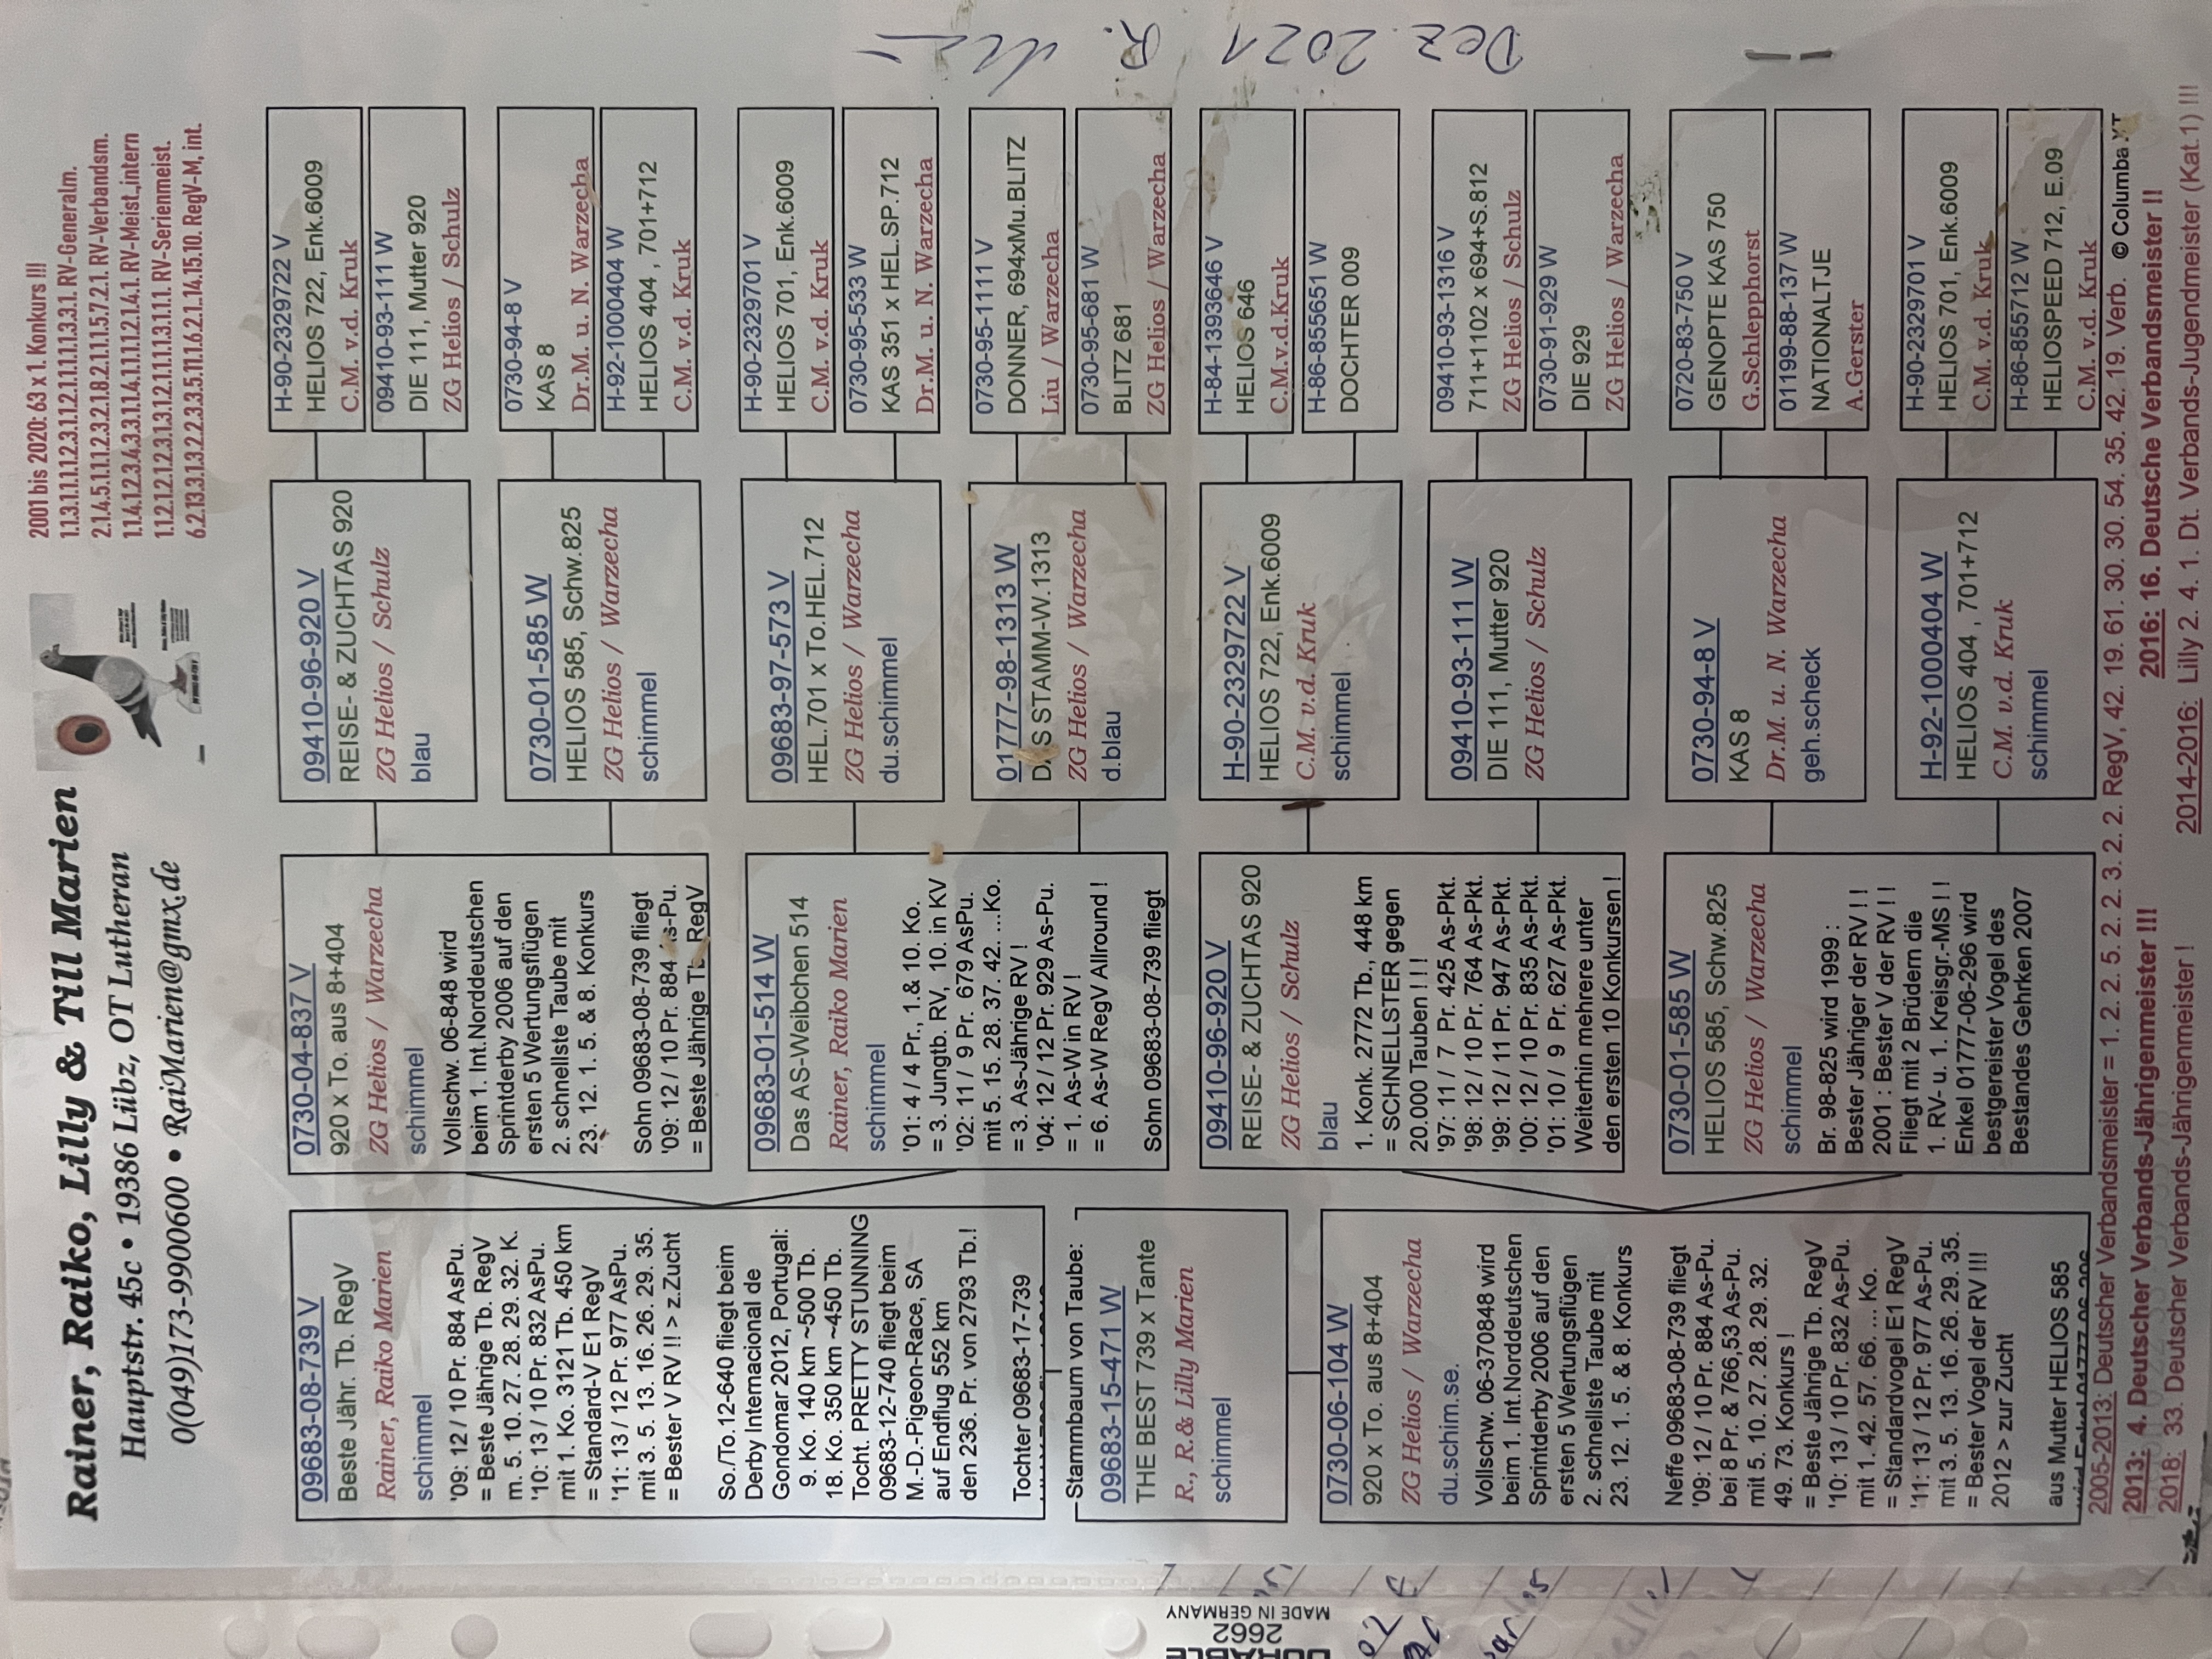 Rainer, Raiko, Lilly & Till Marien
Hauptstr. 45c • 19386 Lübz, OT Lutheran
0(049)173-9900600 • RaiMarien@gmx.de
2001 bis 2020: 63 x 1. Konkurs !!!
RV-Generalm.
RV-Verbandsm.
RV-Meist.,intern
RV-Serienmeist.
RegV-M, int.
09683-08-739 V
Beste Jähr. Tb. RegV
Rainer, Raiko Marien
schimmel
'09: 12 / 10 Pr. 884 AsPu.
= Beste Jährige Tb. RegV
m. 5. 10. 27. 28. 29. 32. K.
'10: 13 / 10 Pr. 832 AsPu.
mit 1. Ko. 3121 Tb. 450 km
= Standard-V E1 RegV
'11: 13 / 12 Pr. 977 AsPu.
mit 3. 5. 13. 16. 26. 29. 35.
= Bester V RV !! > z.Zucht
So./To. 12-640 fliegt beim
Derby Internacional de
Gondomar 2012, Portugal:
9. Ko. 140 km ~500 Tb.
18. Ko. 350 km ~450 Tb.
Tocht. PRETTY STUNNING
09683-12-740 fliegt beim
M.-D.-Pigeon-Race, SA
auf Endflug 552 km
den 236. Pr. von 2793 Tb.!
Tochter 09683-17-739
Stammbaum von Taube:
09683-15-471 W
THE BEST 739 x Tante
R., R.& Lilly Marien
schimmel
0730-06-104 W
920 x To. aus 8+404
ZG Helios / Warzecha
du.schim.se.
Vollschw. 06-370848 wird
beim 1. Int.Norddeutschen
Sprintderby 2006 auf den
ersten 5 Wertungsflügen
2. schnellste Taube mit
23. 12. 1. 5. & 8. Konkurs
Neffe 09683-08-739 fliegt
'09: 12 / 10 Pr. 884 As-Pu.
bei 8 Pr. & 766,53 As-Pu.
mit 5. 10. 27. 28. 29. 32.
49. 73. Konkurs !
= Beste Jährige Tb. RegV
'10: 13 / 10 Pr. 832 As-Pu.
mit 1. 42. 57. 66. ... Ko.
= Standardvogel E1 RegV
'11: 13 / 12 Pr. 977 As-Pu.
mit 3. 5. 13. 16. 26. 29. 35.
= Bester Vogel der RV !!!
2012 > zur Zucht
aus Mutter HELIOS 585
0730-04-837 V
920 x To. aus 8+404
ZG Helios / Warzecha
schimmel
Vollschw. 06-848 wird
beim 1. Int.Norddeutschen
Sprintderby 2006 auf den
ersten 5 Wertungsflügen
2. schnellste Taube mit
23. 12. 1. 5. & 8. Konkurs
Sohn 09683-08-739 fliegt
'09: 12 / 10 Pr. 884 As-Pu.
= Beste Jährige Tb. RegV
09683-01-514 W
Das AS-Weibchen 514
Rainer, Raiko Marien
schimmel
'01: 4 / 4 Pr., 1.& 10. Ko.
= 3. Jungtb. RV, 10. in KV
'02: 11 / 9 Pr. 679 AsPu.
mit 5. 15. 28. 37. 42. ...Ko.
= 3. As-Jährige RV !
'04: 12 / 12 Pr. 929 As-Pu.
= 1. As-W in RV !
= 6. As-W RegV Allround !
Sohn 09683-08-739 fliegt
09410-96-920 V
REISE- & ZUCHTAS 920
ZG Helios / Schulz
blau
1. Konk. 2772 Tb., 448 km
= SCHNELLSTER gegen
20.000 Tauben ! ! !
'97: 11 / 7 Pr. 425 As-Pkt.
'98: 12 / 10 Pr. 764 As-Pkt.
'99: 12 / 11 Pr. 947 As-Pkt.
'00: 12 / 10 Pr. 835 As-Pkt.
'01: 10 / 9 Pr. 627 As-Pkt.
Weiterhin mehrere unter
den ersten 10 Konkursen !
0730-01-585 W
HELIOS 585, Schw.825
ZG Helios / Warzecha
schimmel
Br. 98-825 wird 1999 :
Bester Jähriger der RV ! !
2001 : Bester V der RV ! !
Fliegt mit 2 Brüdern die
1. RV- u. 1. Kreisgr.-MS ! !
Enkel 01777-06-296 wird
bestgereister Vogel des
Bestandes Gehrken 2007
09410-96-920 V
REISE- & ZUCHTAS 920
ZG Helios / Schulz
blau
0730-01-585 W
HELIOS 585, Schw.825
ZG Helios / Warzecha
schimmel
09683-97-573 V
HEL.701 x To.HEL.712
ZG Helios / Warzecha
du.schimmel
01777-98-1313 W
STAMM-W.1313
ZG Helios / Warzecha
d.blau
H-90-2329722 V
HELIOS 722, Enk.6009
C.M. v.d. Kruk
schimmel
09410-93-111 W
DIE 111, Mutter 920
ZG Helios / Schulz
0730-94-8 V
KAS 8
Dr.M. u. N. Warzecha
geh.scheck
H-92-1000404 W
HELIOS 404 , 701+712
C.M. v.d. Kruk
schimmel
H-90-2329722 V
HELIOS 722, Enk.6009
C.M. v.d. Kruk
09410-93-111 W
DIE 111, Mutter 920
ZG Helios / Schulz
0730-94-8 V
KAS 8
Dr.M. u. N. Warzecha
H-92-1000404 W
HELIOS 404 , 701+712
C.M. v.d. Kruk
H-90-2329701 V
HELIOS 701, Enk.6009
C.M. v.d. Kruk
0730-95-533 W
KAS 351 x HEL.SP.712
Dr.M. u. N. Warzecha
0730-95-1111 V
DONNER, 694xMu.BLITZ
Liu / Warzecha
0730-95-681 W
BLITZ 681
ZG Helios / Warzecha
H-84-1393646 V
HELIOS 646
C.M.v.d.Kruk
H-86-855651 W
DOCHTER 009
09410-93-1316 V
711+1102 x 694+S.812
ZG Helios / Schulz
0730-91-929 W
DIE 929
ZG Helios / Warzecha
0720-83-750 V
GENOPTE KAS 750
G.Schlepphorst
01199-88-137 W
NATIONALTJE
A.Gerster
H-90-2329701 V
HELIOS 701, Enk.6009
C.M. v.d. Kruk
H-86-855712 W
HELIOSPEED 712, E.09
C.M. v.d. Kruk
2005-2013: Deutscher Verbandsmeister = 1. 2. 2. 5. 2. 2. 3. 2. 2. RegV, 42. 19. 61. 30. 30. 54. 35. 42. 19. Verb. © Columba XT
2013: 4. Deutscher Verbands-Jährigenmeister !!! 2016: 16. Deutsche Verbandsmeister !!
2018: 33. Deutscher Verbands-Jährigenmeister ! 2014-2016: Lilly 2. 4. 1. Dt. Verbands-Jugendmeister (Kat.1) !!!
Dez. 2021 R.
2662
MADE IN GERMANY